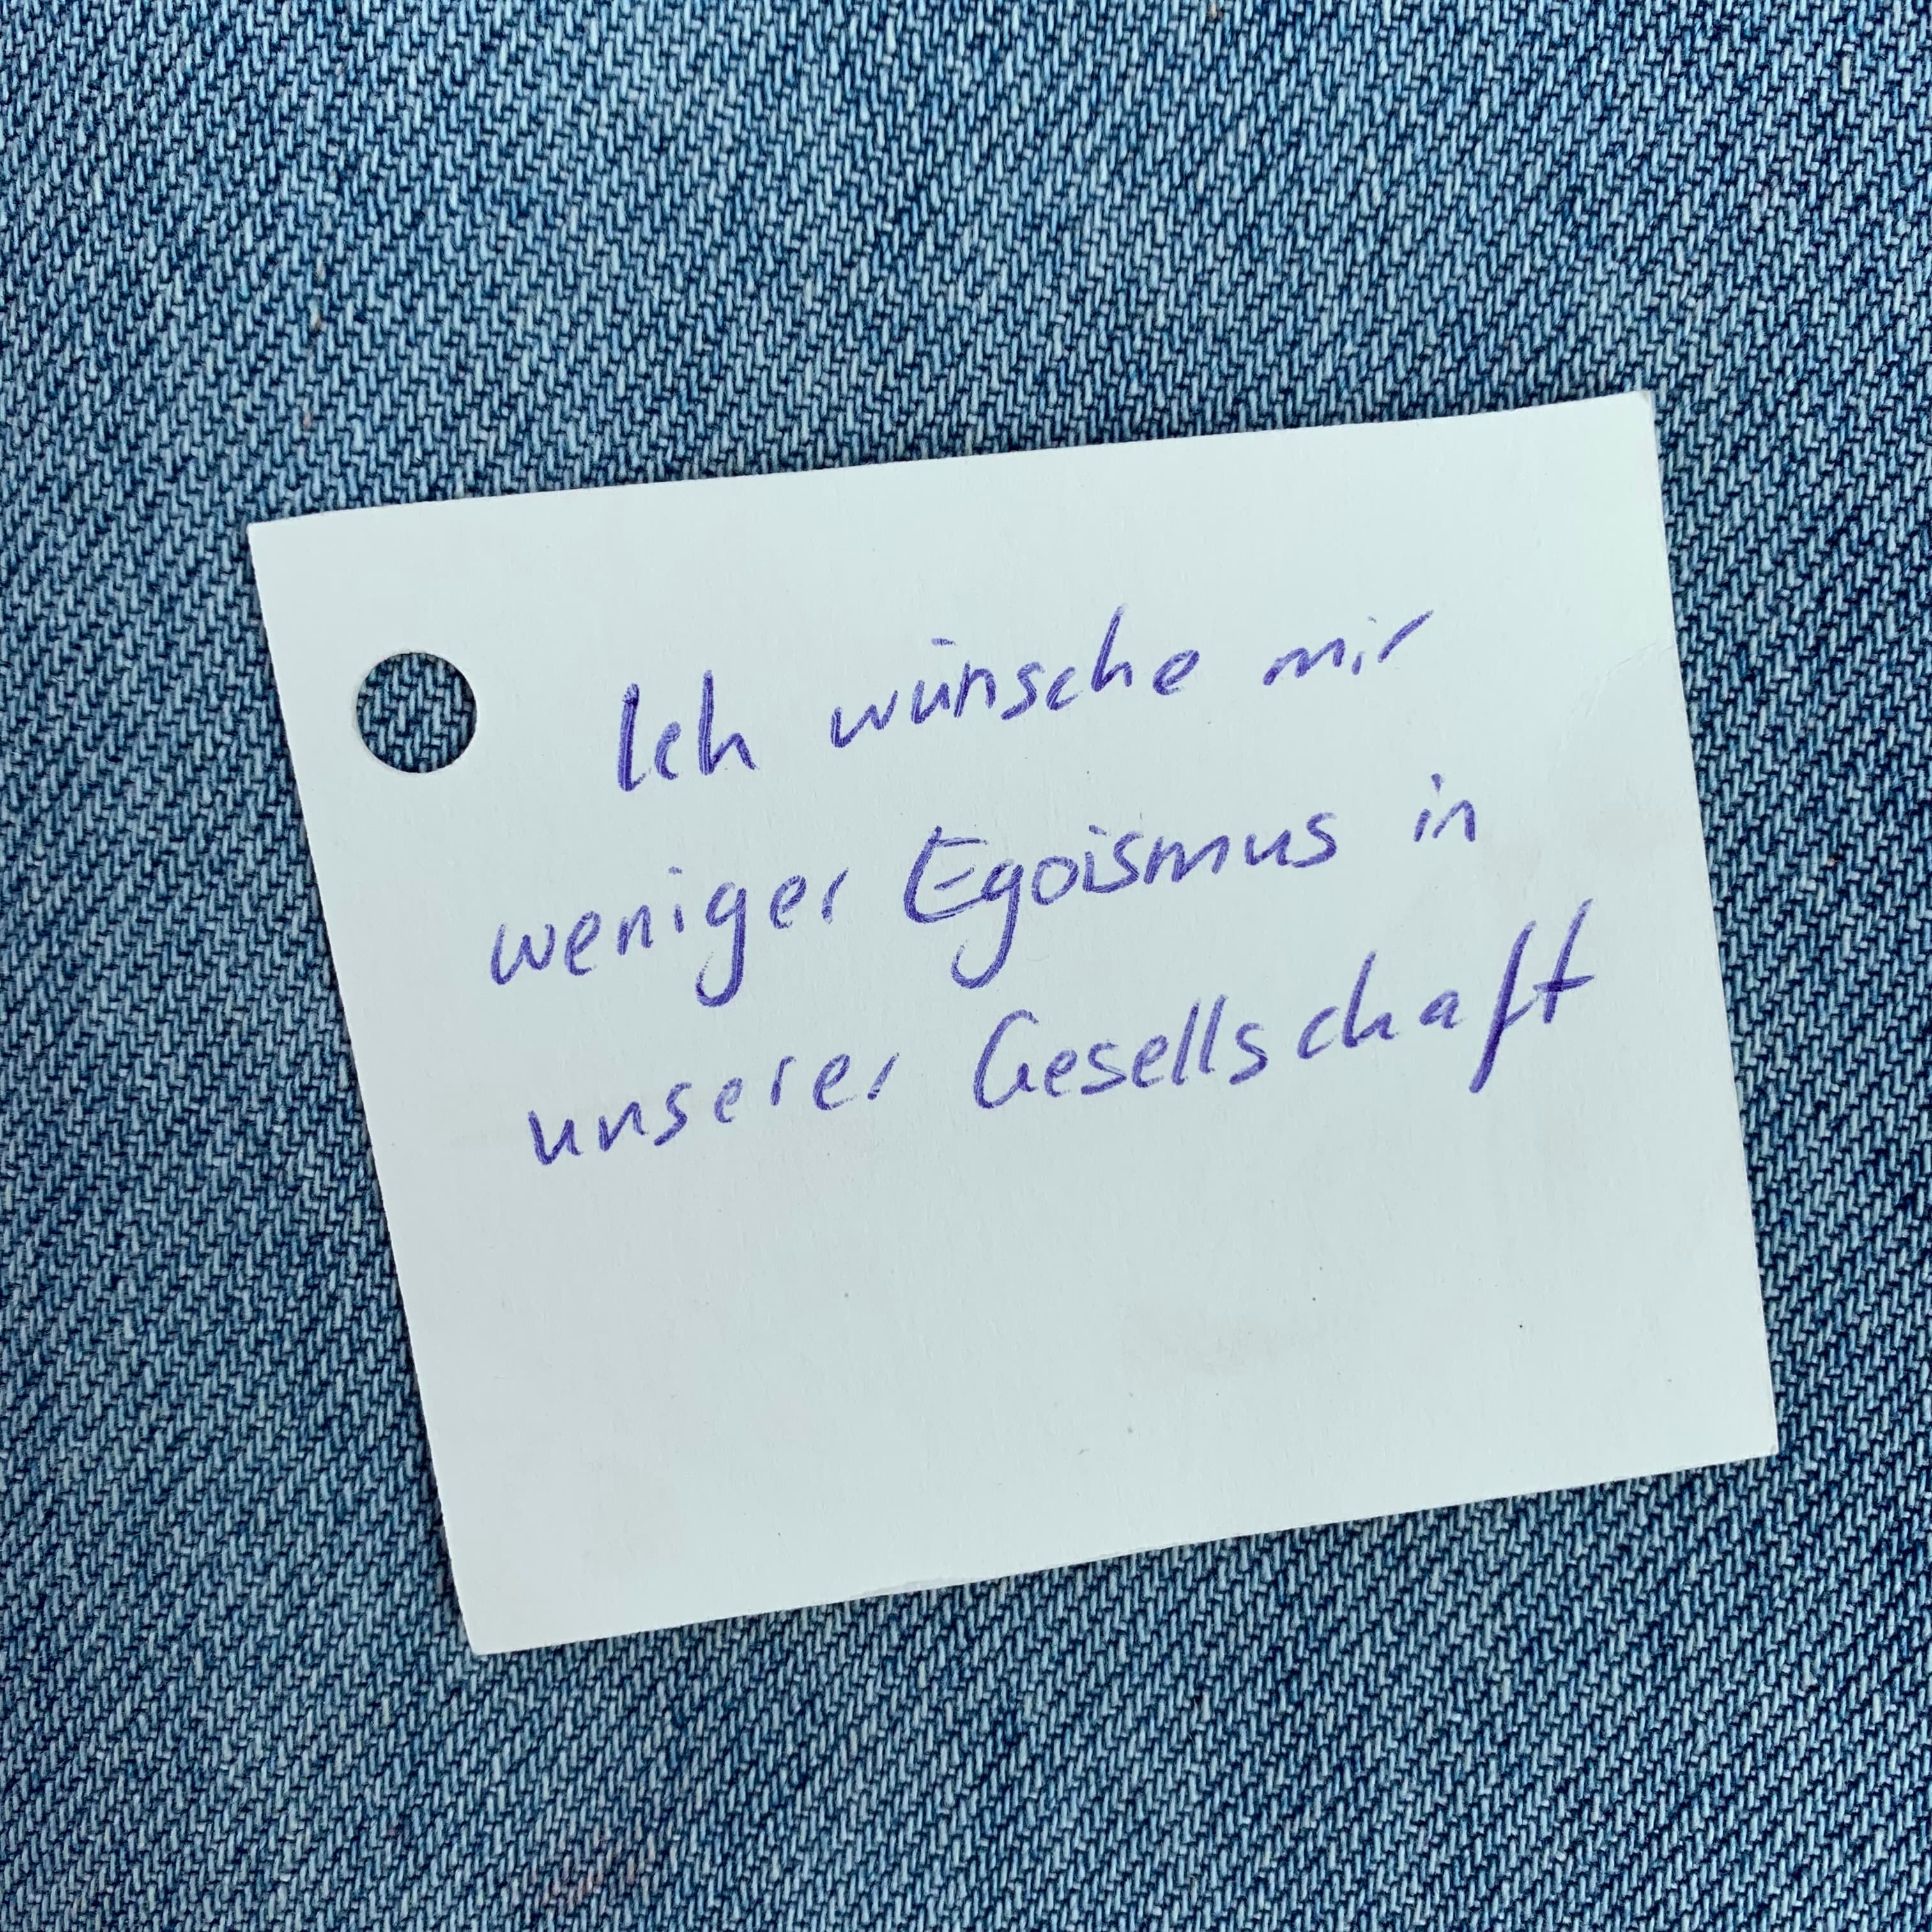 Ich wünsche mir
weniger Egoismus in
unserer Gesellschaft